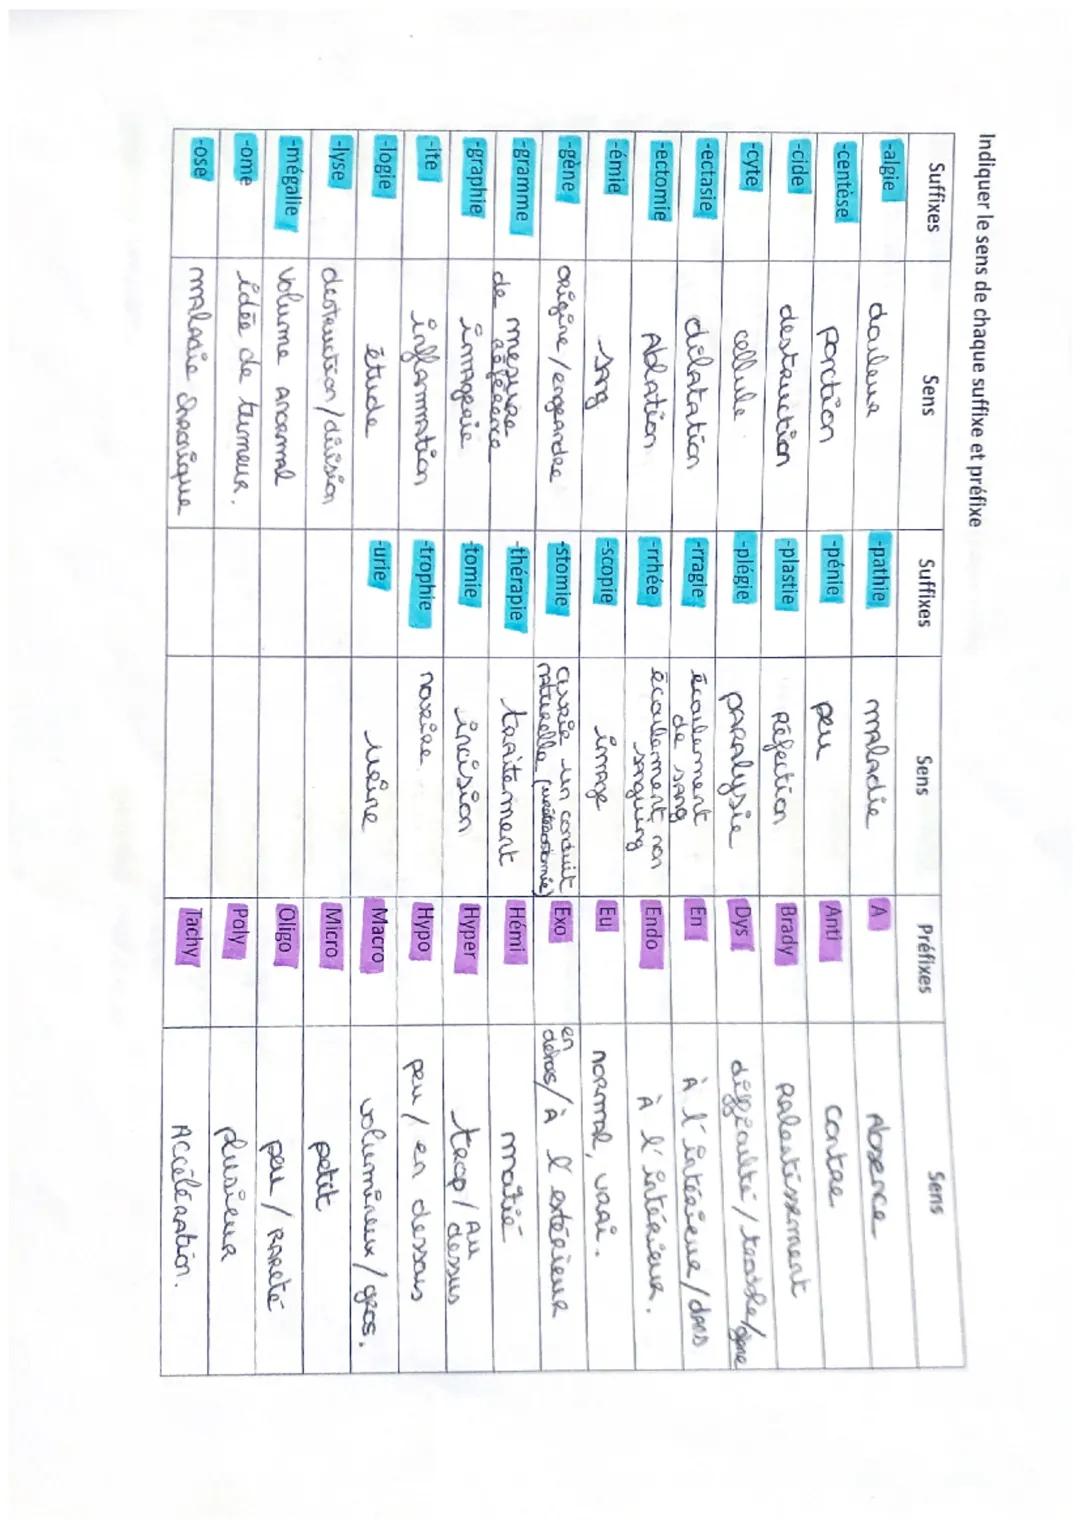 Indiquer le sens de chaque suffixe et préfixe
Suffixes Sens Suffixes Sens Préfixes Sens
-algie douleur -pathie maladie A Absence
-centèse ponction -pénie peu Anti contre
-cide destruction -plastie Réfection Brady Ralentissement
-cyte cellule -plégie paralysie Dys difficulté / trouble / gêne
-ectasie dilatation -rragie écoulement de sang En À l'intérieur / dans
-ectomie Ablation -rrhée écoulement, non sanguin Endo À l'intérieur.
-émie sang -scopie image Eu normal, vrai.
-gène origine / engendrer -stomie ouvrir un conduit naturelle Exo en dehors / à l'extérieur
-gramme mesure de référence -thérapie traitement Hémi moitié
-graphie imagerie -tomie incision Hyper trop / Au dessus
-ite inflammation -trophie nourrir Hypo peu / en dessous
-logie étude -urie urine Macro volumineux / gros.
-lyse destruction / division Micro petit
-mégalie Volume anormal Oligo peu / Rareté
-ome idée de tumeur. Poly plusieur
-ose maladie chronique Tachy Accélération.